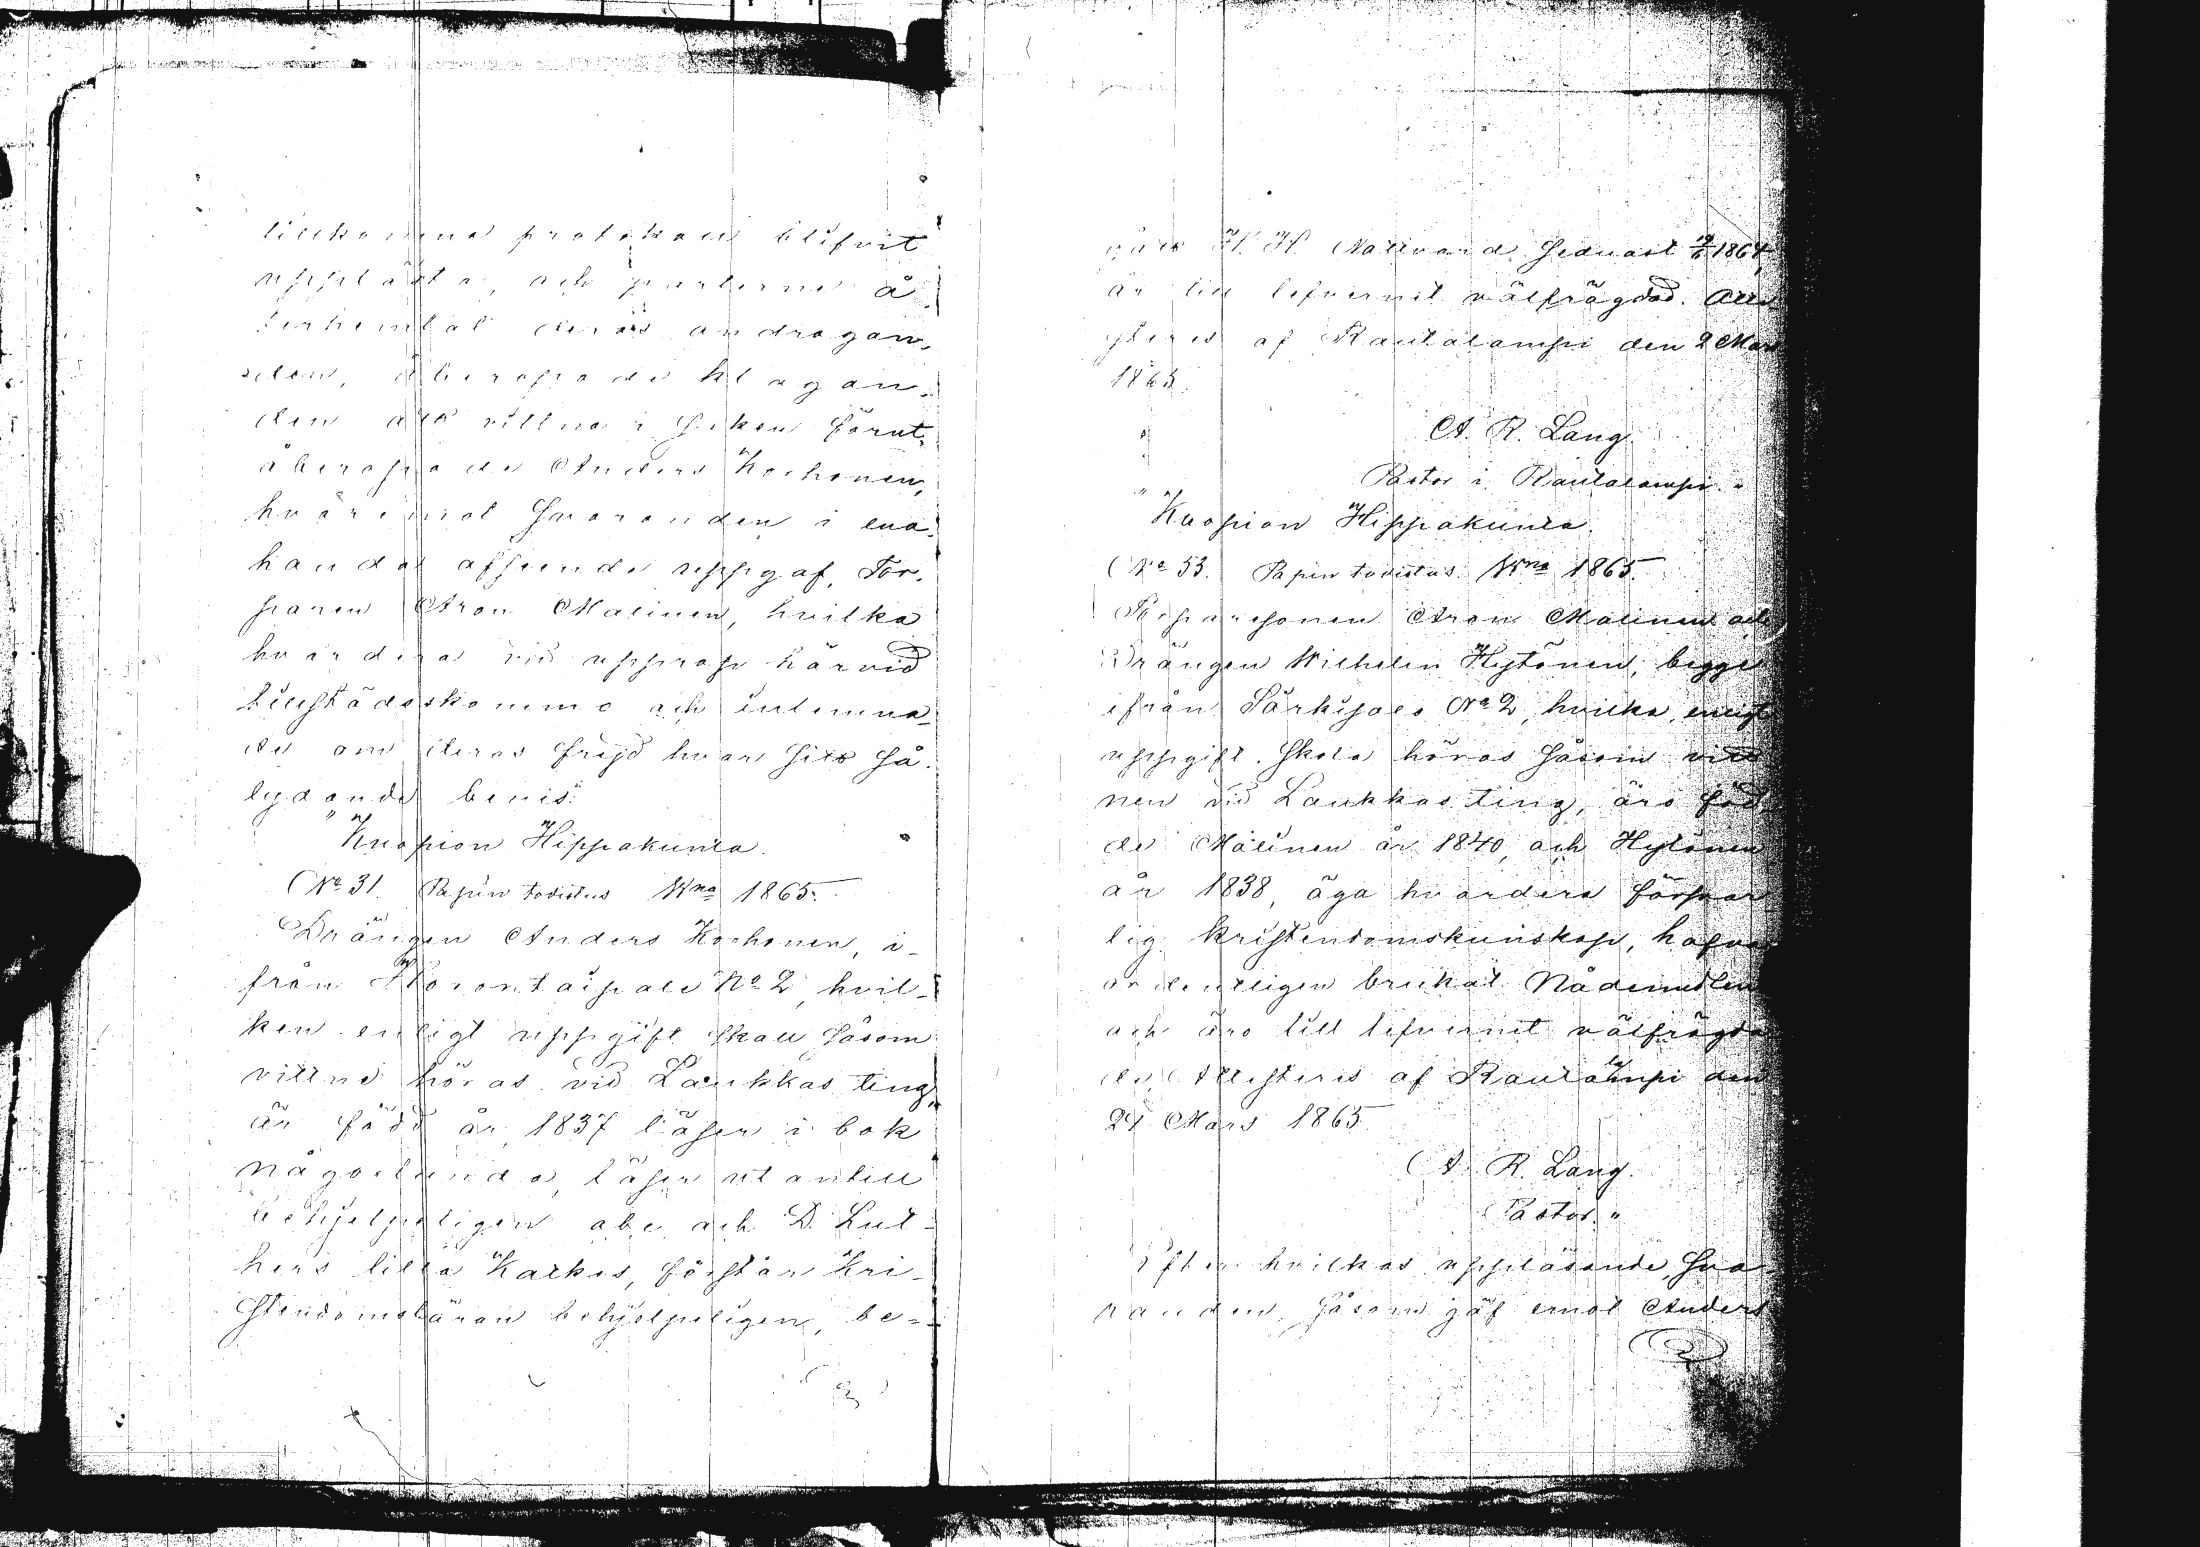 tillkomna protokoll blifvit
uppläste, och parterne å
terhemtat deras andragan-
den, åberopade klagan-
den att vittna i saken förut
åberopade Anders Korhonen,
hvaremot Svaranden i ena
handa afseende uppgaf Tor-
paren Aron Malinen, hvilka
hvardera vid upprop härvid
tillstädeskommo och inlemna-
de om deras frejd hvar sitt så
lydande bevis:
"Kuopion Hippakunta.
(No 31. Papin todistus Wna 1865.
Drängen Anders Korhonen, i-
från Korontaipale No 2, hvil-
ken enligt uppgift skall såsom
vittne höras vid Laukkas ting,
är född år 1837 läser i bok
någorlunda, läser utantill
behjelpeligen abc och D. Lut-
hers lilla Katkes, förstår Kri-
stendomsläran behjelpeligen, be-
gått H. H. Nattvard sednast 1864,
är till lefvernet välfrägdad. Atte-
steres af Rautalampi den 2 Mars
1865.
A. R. Lang
Pastor i Rautalampi."
"Kuopion Hippakunta.
(No 53. Papin todistus Wna 1865.
Torparesonen Aron Malinen och
Drängen Wilhelm Hytönen, begge
ifrån Särkisalo No 2, hvilka, enligt
uppgift skola höras såsom vitt
nen vid Laukkas ting, äro föd
de Malinen år 1840, och Hytönen
år 1838, äga hvardera försvar
lig kristendomskunskap, hafva
ordentligen brukat Nådemedlen
och äro till lefvernet välfrägda
de, Attesteris af Rautalampi den
24 Mars 1865
A. R. Lang.
Pastor."
Efter hvilkas uppläsande, Sva
randen, såsom jäf emot Anders